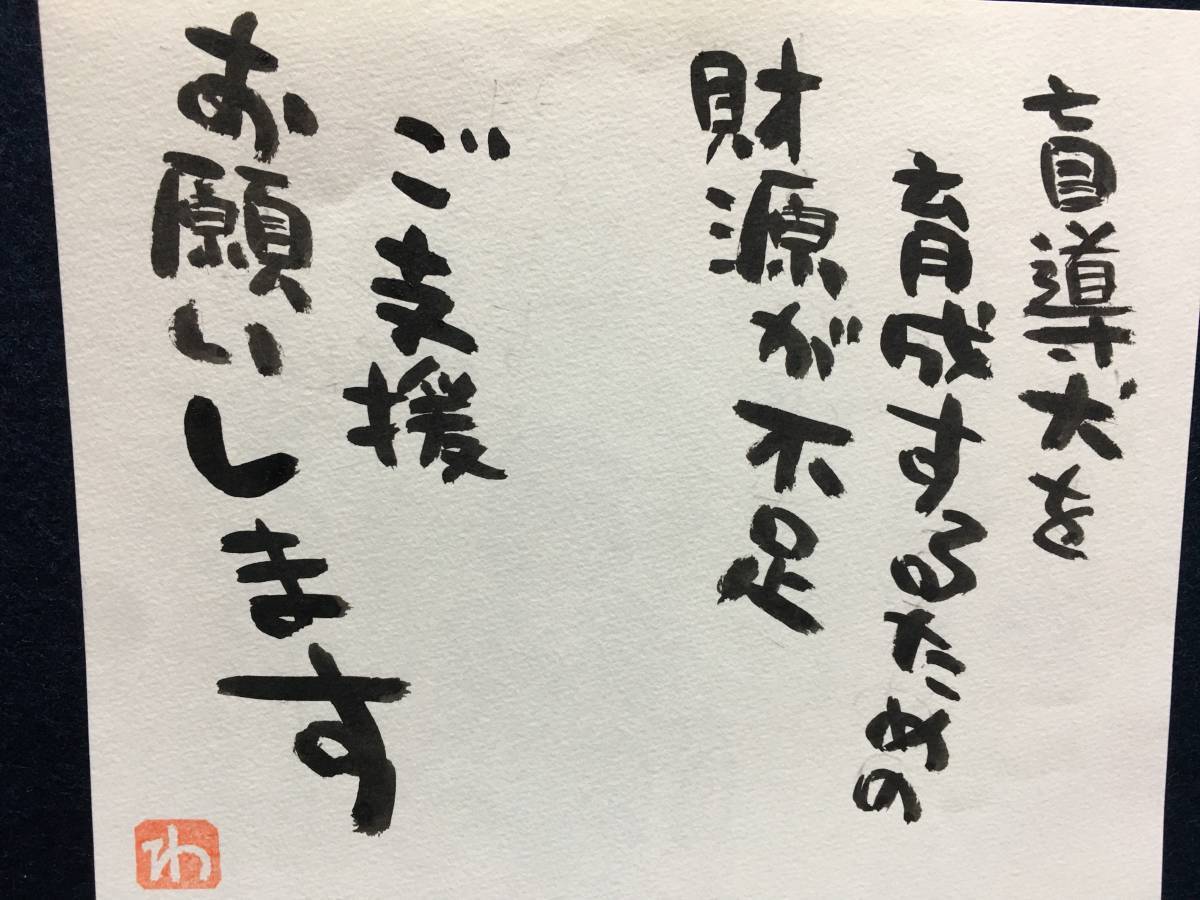 盲導犬を
育成するための
財源が不足
ご支援
お願いします
わ